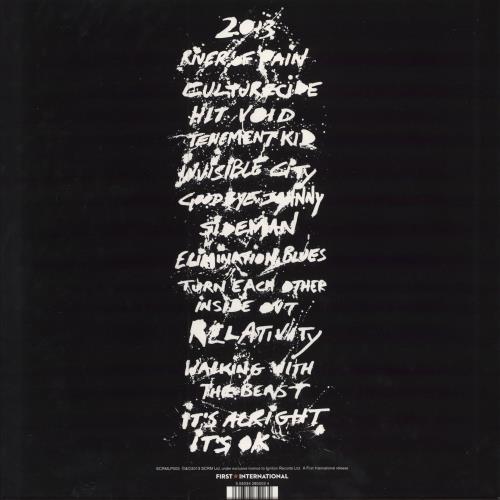 2013
RIVER OF PAIN
CULTURECIDE
HIT VOID
TENEMENT KID
INVISIBLE CITY
GOODBYE JOHNNY
SIDEMAN
ELIMINATION BLUES
TURN EACH OTHER
INSIDE OUT
RELATIVITY
WALKING WITH
THE BEAST
IT'S ALRIGHT,
IT'S OK
FIRST ★ INTERNATIONAL